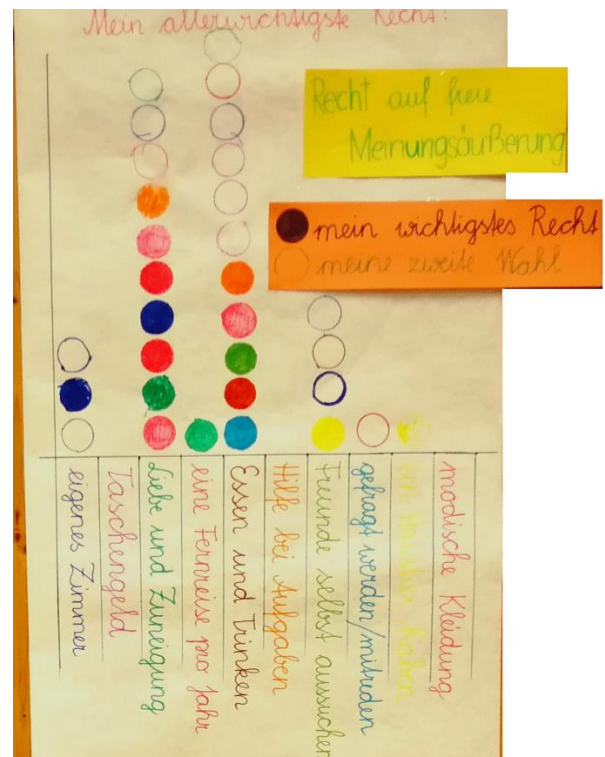 Mein allerwichtigste Recht:
Recht auf freie
Meinungsäußerung
mein wichtigstes Recht
meine zweite Wahl
eigenes Zimmer
Taschengeld
Liebe und Zuneigung
eine Fernreise pro Jahr
Essen und Trinken
Hilfe bei Aufgaben
Freunde selbst aussuchen
gefragt werden/mitreden
ein Haustier haben
modische Kleidung